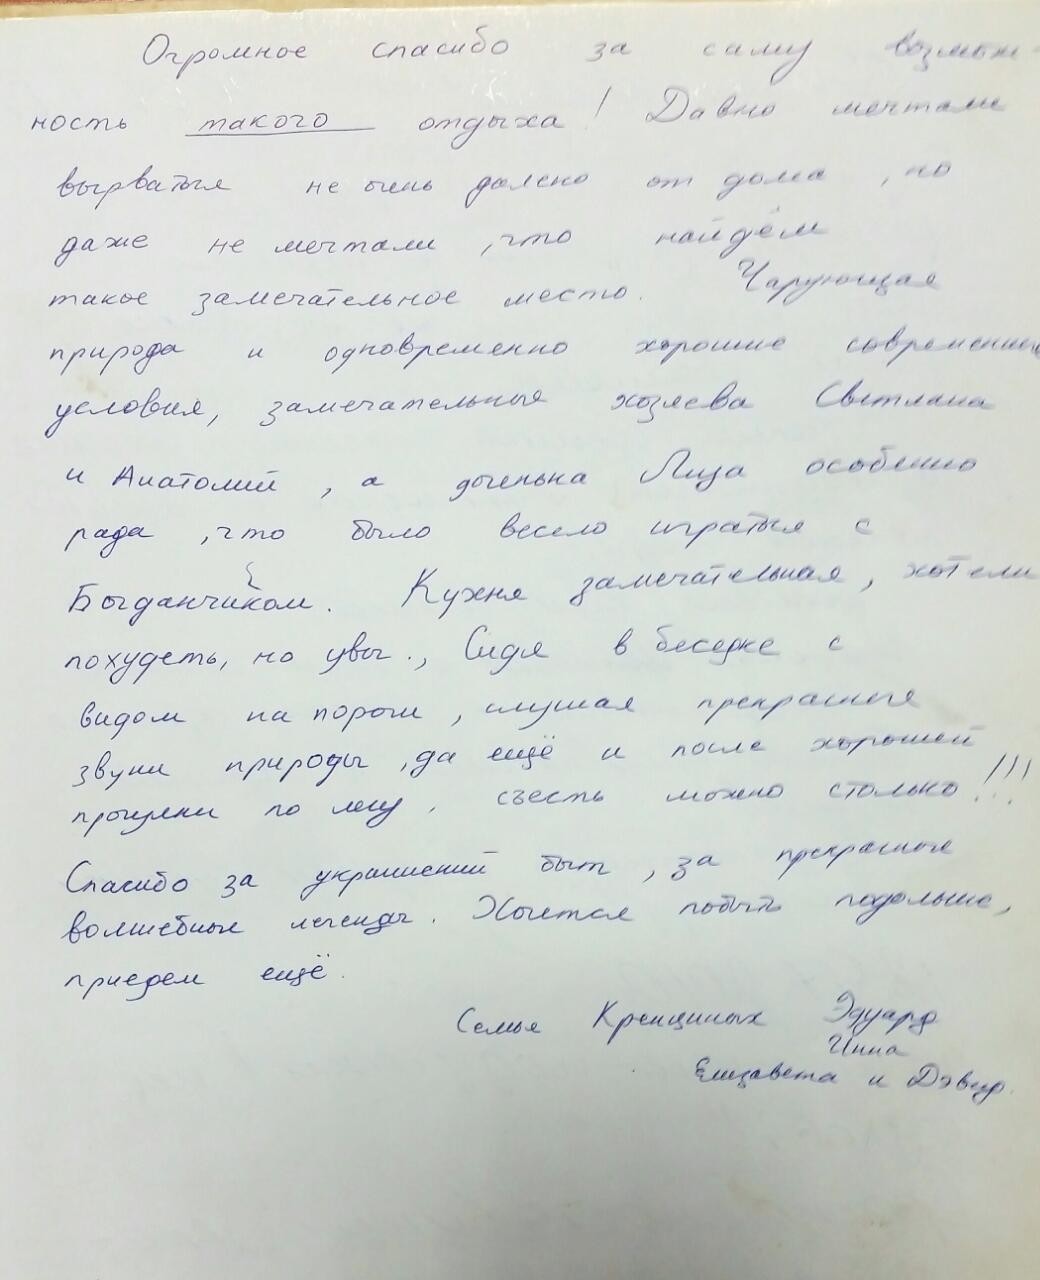 Огромное спасибо за саму возмож-
ность такого отдыха! Давно мечтали
вырваться не очень далеко от дома, но
даже не мечтали, что найдём
такое замечательное место. Чарующая
природа и одновременно хорошие современные
условия, замечательные хозяева Светлана
и Анатолий, а доченька Лиза особенно
рада, что было весело играться с
Богданчиком. Кухня замечательная, хотели
похудеть, но увы., Сидя в беседке с
видом на пороги, слушая прекрасные
звуки природы, да ещё и после хорошей
прогулки по лесу, съесть можно столько!!!
Спасибо за украинский быт, за прекрасные
волшебные легенды. Хочется побыть подольше,
приедем ещё.
Семья Эдуард
Инна
Елизавета и Дэвид.